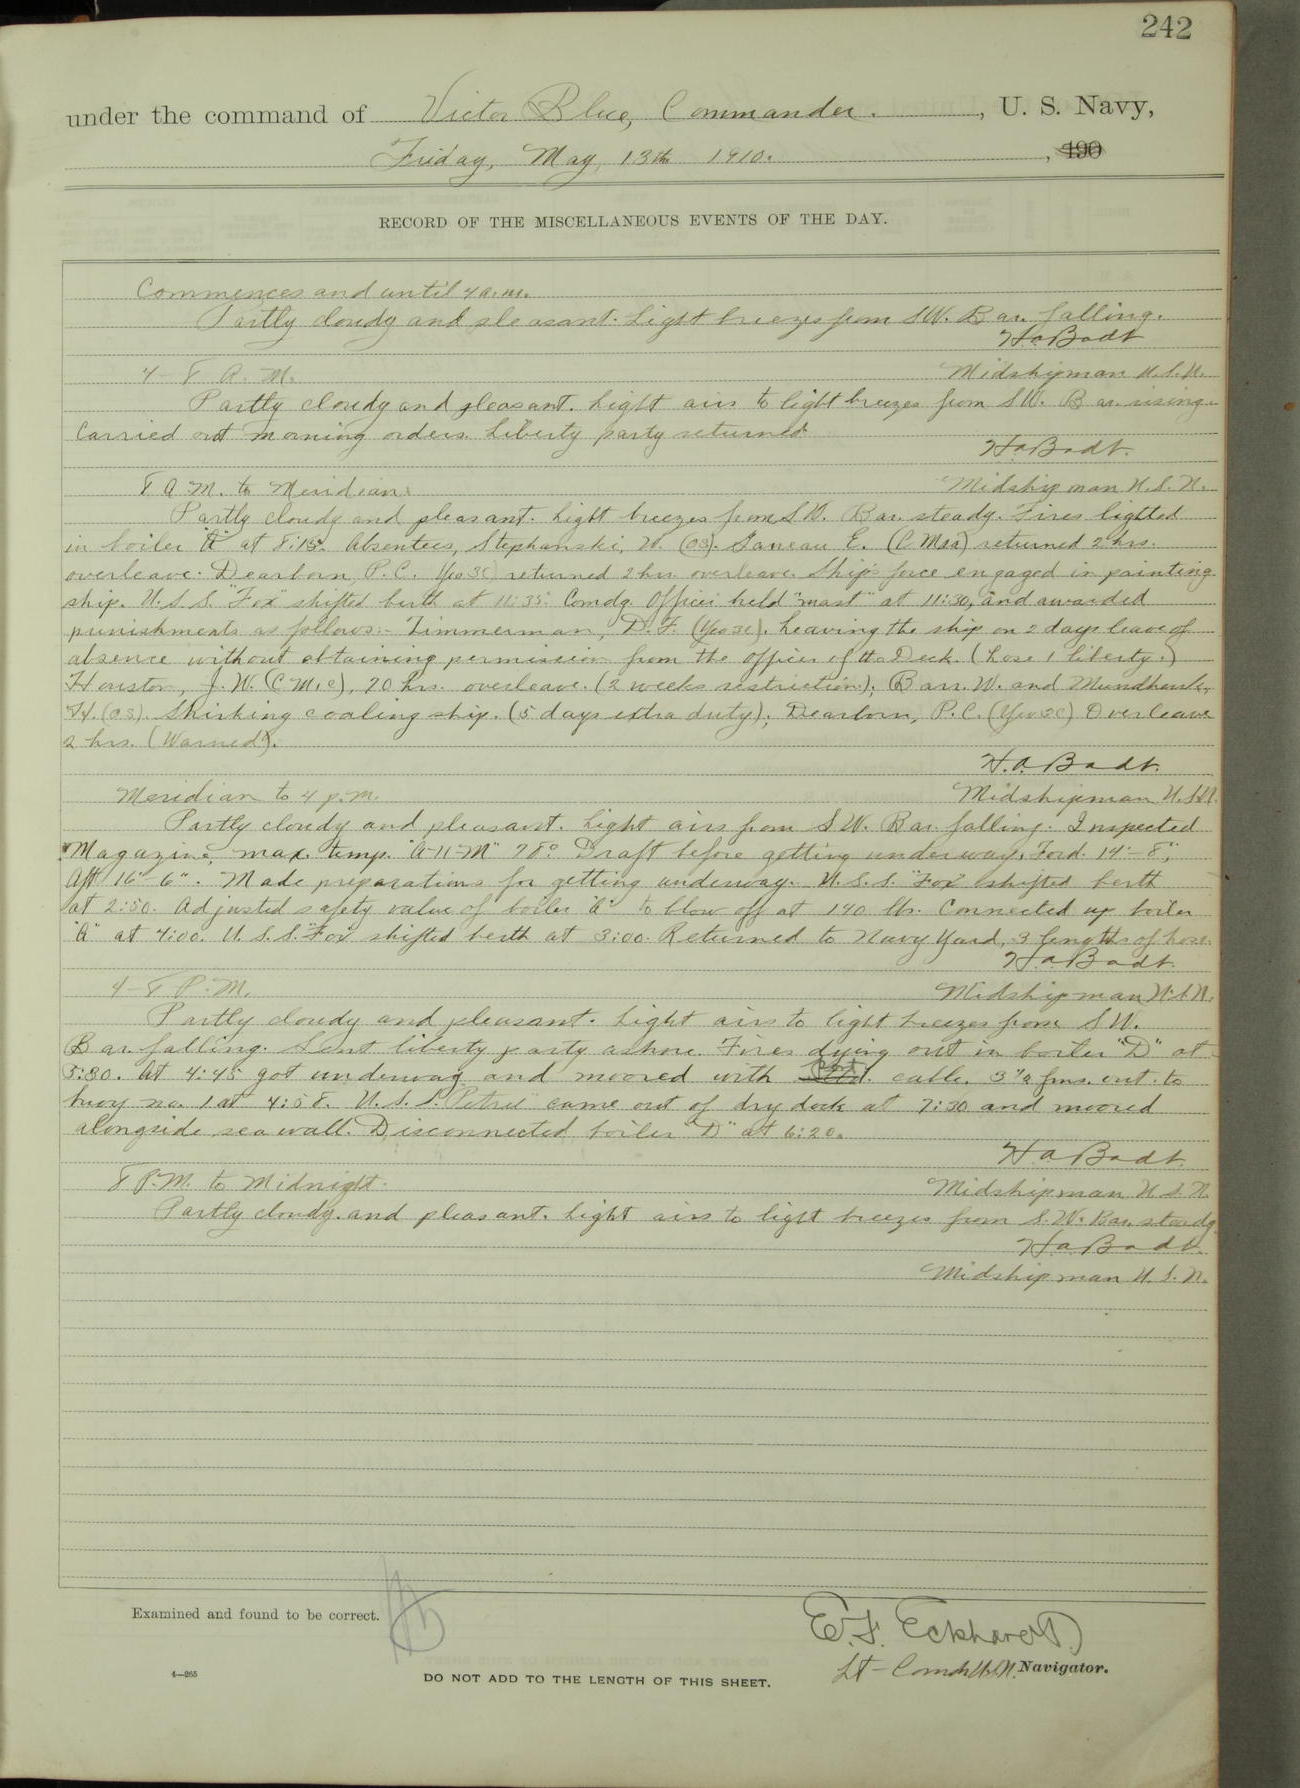 242
under the command of Victor Blue, Commander. , U. S. Navy,
Friday, May 13th 1910. , 190
RECORD OF THE MISCELLANEOUS EVENTS OF THE DAY.
Commences and until 4 a.m.
Partly cloudy and pleasant. Light breezes from SW. Bar. falling.
H.A. Badt
4 - 8 A. M. Midshipman U.S.N.
Partly cloudy and pleasant. Light airs to light breezes from SW. Bar. rising.
Carried out morning orders. Liberty party returned.
H.A. Badt.
8 A.M. to Meridian. Midshipman U.S.N.
Partly cloudy and pleasant. Light breezes from S.W. Bar. steady. Fires lighted
in boiler "A" at 8:15. Absentees, Stephanski, W. (OS). Janeau E. (C Maa) returned 2 hrs.
overleave. Dearborn, P.C. Yeo 3C) returned 2 hrs. overleave. Ship's force engaged in painting
ship. U.S.S. "Fox" shifted berth at 11:35. Comdg. Officer held "mast" at 11:30, and awarded
punishments as follows:- Zimmerman, D.F. (Yeo 3C). Leaving the ship on 2 days leave of
absence without obtaining permission from the officer of the Deck. (Lose 1 liberty.)
Houston, J. W. (C M. C), 70 hrs. overleave. (2 weeks restriction); Barr. W. and
H. (OS). Shirking coaling ship. (5 days extra duty); Dearborn, P.C. (Yeo 3C) Overleave
2 hrs. (Warned).
H.A. Badt.
Meridian to 4 p.m. Midshipman U.S.N.
Partly cloudy and pleasant. Light airs from S.W. Bar. falling. Inspected
Magazine, max. temp. "A-11-M" 78°. Draft before getting underway, For'd. 14'-8",
Aft 16'-6". Made preparations for getting underway. U.S.S. "Fox" shifted berth
at 2:50. Adjusted safety valve of boiler "A" to blow off at 140 lbs. Connected up boiler
"A" at 4:00. U.S.S. "Fox" shifted berth at 3:00. Returned to Navy Yard, 3 lengths of hose.
H.A. Badt.
4-8 P.M. Midshipman U.S.N.
Partly cloudy and pleasant. Light airs to light breezes from S.W.
Bar. falling. Sent liberty party ashore. Fires dying out in boiler "D" at
5:30. At 4:45 got underway and moored with Port cable. 3 1/2 fms. out. to
buoy no. 1 at 4:58. U.S.S. "Petrel" came out of dry dock at 7:30 and moored
alongside sea wall. Disconnected boiler "D" at 6:20.
H.A. Badt.
8 P.M. to Midnight. Midshipman U.S.N.
Partly cloudy and pleasant. Light airs to light breezes from S.W. Bar. steady
H.A. Badt.
Midshipman U.S.N.
Examined and found to be correct.
E.F. Eckhardt.
Lt-Comdr. U.S.N. Navigator.
4—265
DO NOT ADD TO THE LENGTH OF THIS SHEET.